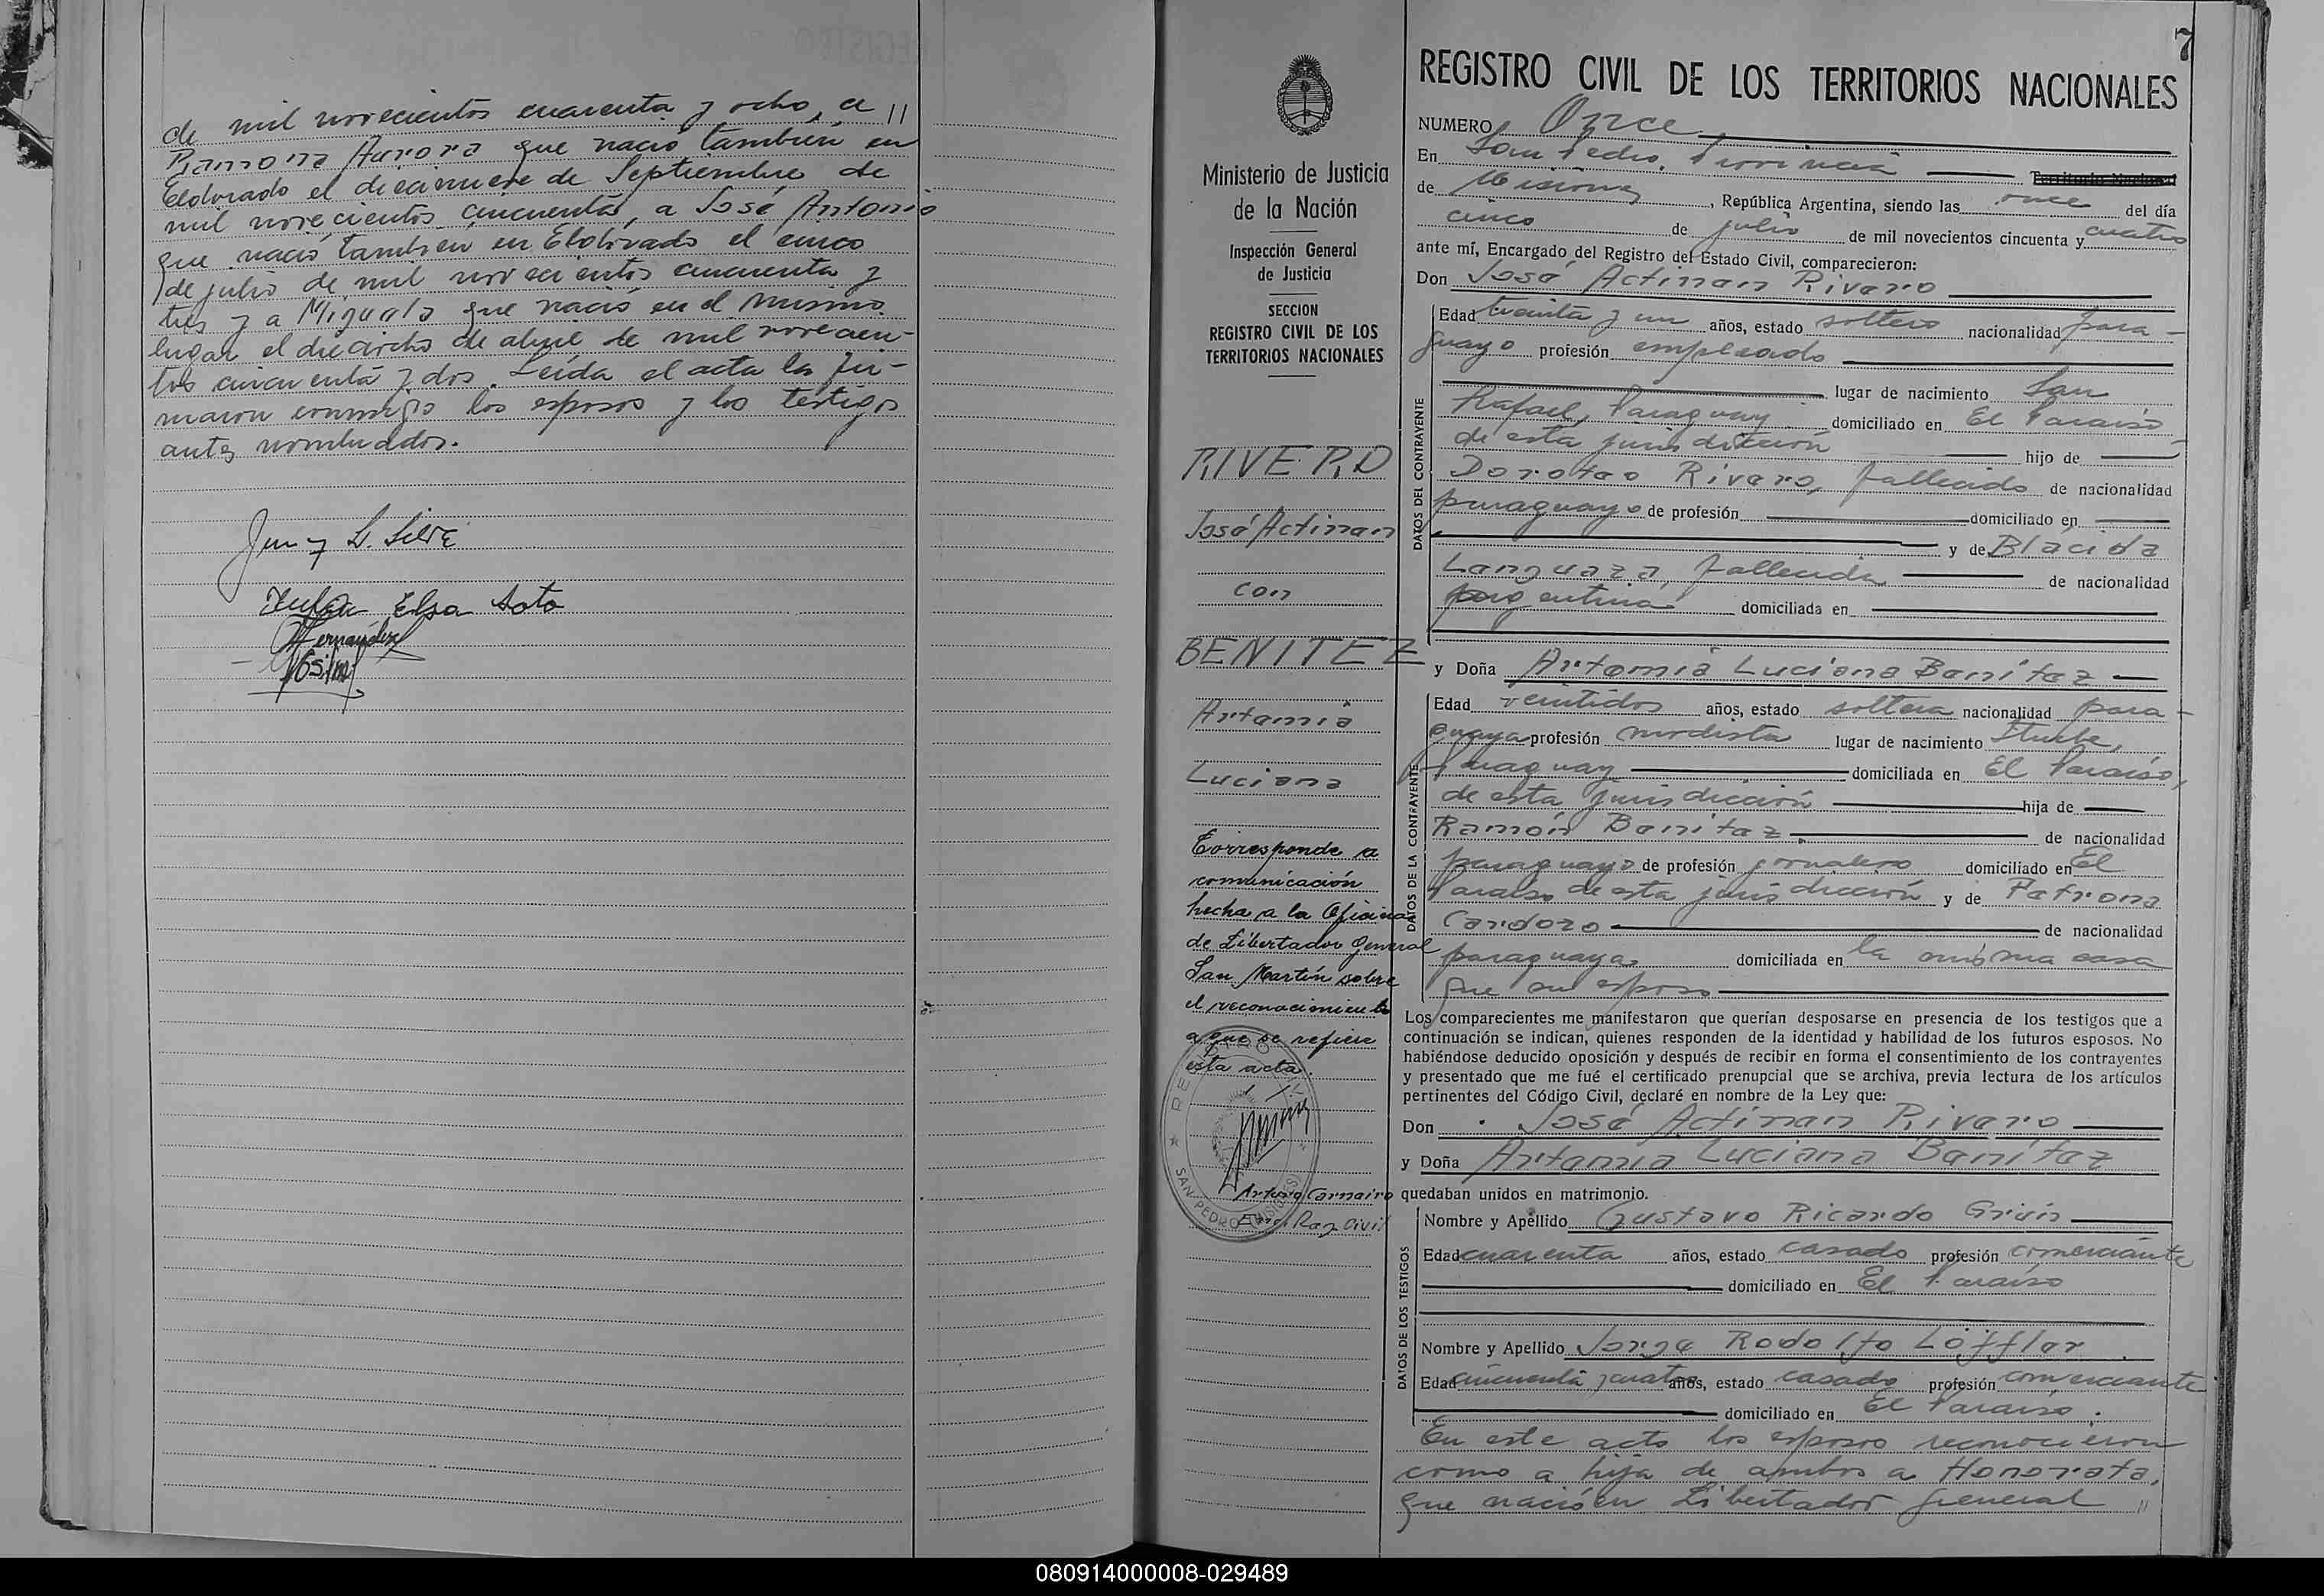 de mil novecientos cuarenta y ocho, a //
Ramona Aurora que nació también en
Eldorado el diecinueve de Septiembre de
mil novecientos cincuenta, a José Antonio
que nació también en Eldorado el cinco
de julio de mil novecientos cincuenta y
tres y a Miguela que nació en el mismo
lugar el dieciocho de abril de mil novecien-
tos cincuenta y dos. Leída el acta la fir-
maron conmigo los esposos y los testigos
antes nombrados.
Elsa Soto
Fernández
7
Ministerio de Justicia
de la Nación
Inspección General
de Justicia
SECCION
REGISTRO CIVIL DE LOS
TERRITORIOS NACIONALES
RIVERO
José Actinan
con
BENITEZ
Artemia
Luciana
Corresponde a
comunicación
hecha a la Oficina
de Libertador General
San Martín sobre
el reconocimiento
a que se refiere
esta acta.
SAN PEDRO MISIONES
Arturo Carneiro
Enc. Reg Civil
REGISTRO CIVIL DE LOS TERRITORIOS NACIONALES
NUMERO Once
En San Pedro, Provincia Territorio Nacional
de Misiones, República Argentina, siendo las once del día
cinco de julio de mil novecientos cincuenta y cuatro
ante mí, Encargado del Registro del Estado Civil, comparecieron:
Don José Actinan Rivero
DATOS DEL CONTRAYENTE
Edad treinta y un años, estado soltero nacionalidad para-
guayo profesión empleado
lugar de nacimiento San
Rafael, Paraguay domiciliado en El Paraíso
de esta jurisdicción hijo de
Doroteo Rivero, fallecido de nacionalidad
paraguayo de profesión domiciliado en
y de Blácida
Languaza, fallecida de nacionalidad
argentina domiciliada en
y Doña Artemia Luciana Benítez
DATOS DE LA CONTRAYENTE
Edad veintidos años, estado soltera nacionalidad para-
guaya profesión modista lugar de nacimiento Iturbe,
Paraguay domiciliada en El Paraíso,
de esta jurisdicción hija de
Ramón Benitez de nacionalidad
paraguayo de profesión jornalero domiciliado en El
Paraíso de esta jurisdicción y de Petrona
Cardozo de nacionalidad
paraguaya domiciliada en la misma casa
que su esposo
Los comparecientes me manifestaron que querían desposarse en presencia de los testigos que a
continuación se indican, quienes responden de la identidad y habilidad de los futuros esposos. No
habiéndose deducido oposición y después de recibir en forma el consentimiento de los contrayentes
y presentado que me fué el certificado prenupcial que se archiva, previa lectura de los artículos
pertinentes del Código Civil, declaré en nombre de la Ley que:
Don José Actinan Rivero
y Doña Artemia Luciana Benítez
quedaban unidos en matrimonio.
DATOS DE LOS TESTIGOS
Nombre y Apellido Gustavo Ricardo Grün
Edad cuarenta años, estado casado profesión comerciante
domiciliado en El Paraíso
Nombre y Apellido Jorge Rodolfo Löffler
Edad cincuenta y cuatro años, estado casado profesión comerciante
domiciliado en El Paraíso.
En este acto los esposos reconocieron
como a hija de ambos a Honorata,
que nació en Libertador General //
080914000008-029489